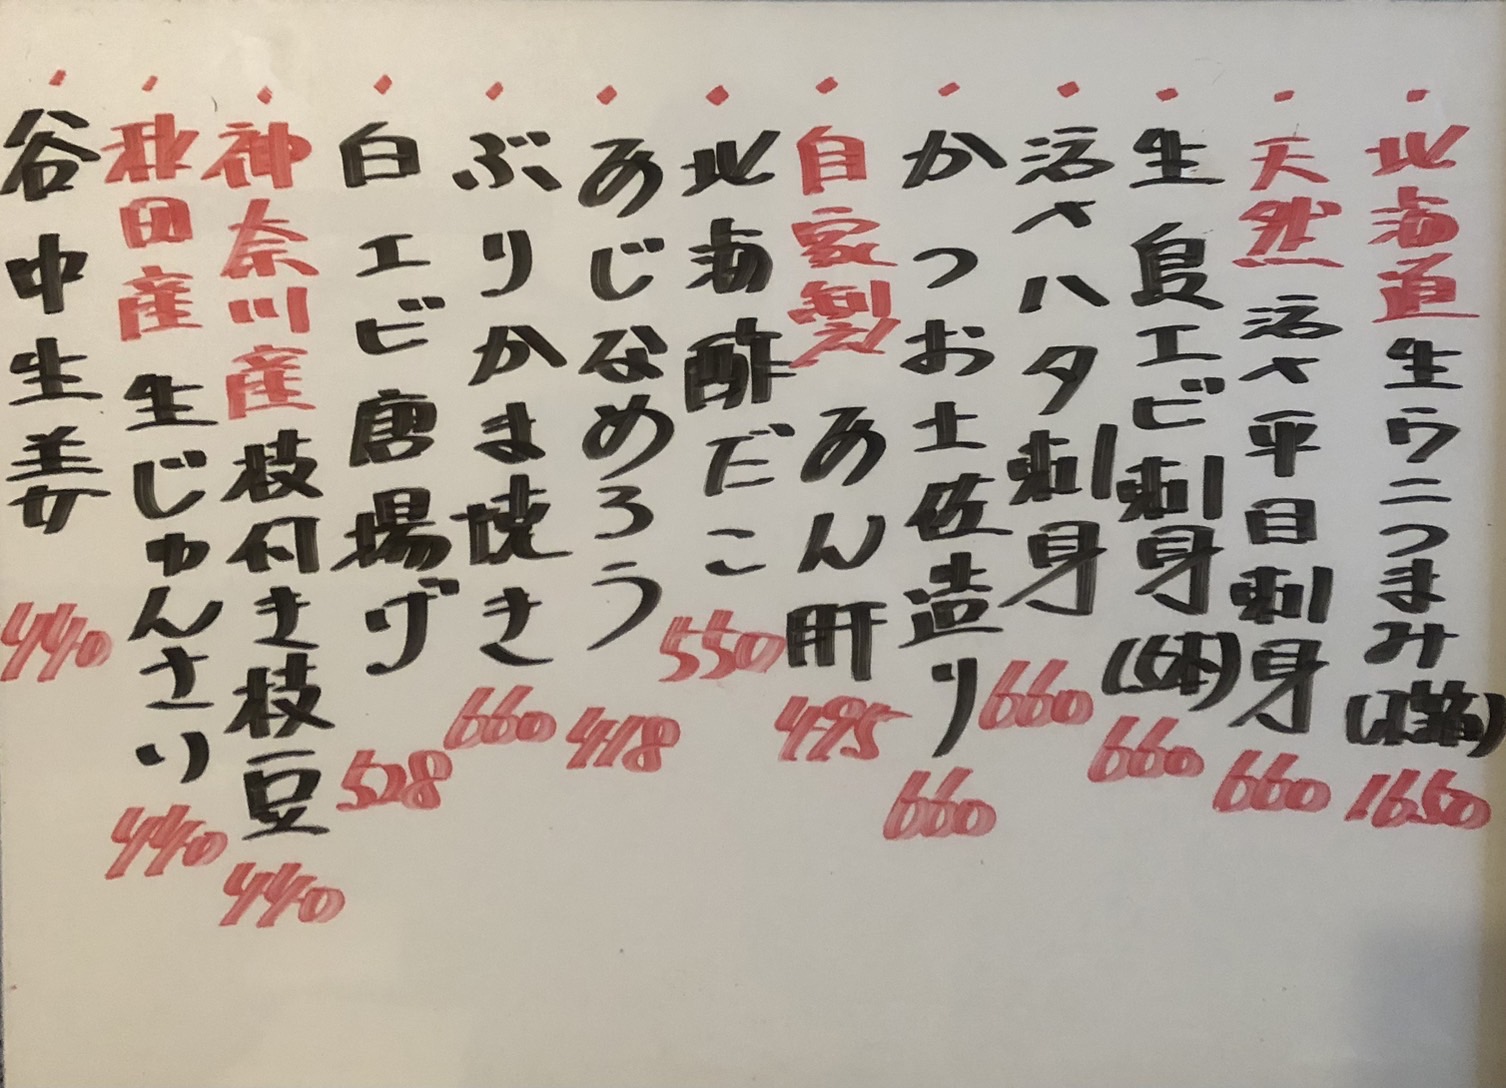 北海道生ウニつまみ(1箱) 1650
天然活〆平目刺身 660
生白エビ刺身 660
活〆ハタ刺身 660
かつお土佐造り 660
自家製あん肝 495
北海酢だこ 550
あじなめろう 418
ぶりかま焼き 660
白エビ唐揚げ 528
神奈川産枝付き枝豆 440
秋田産生じゅんさい 440
谷中生姜 440